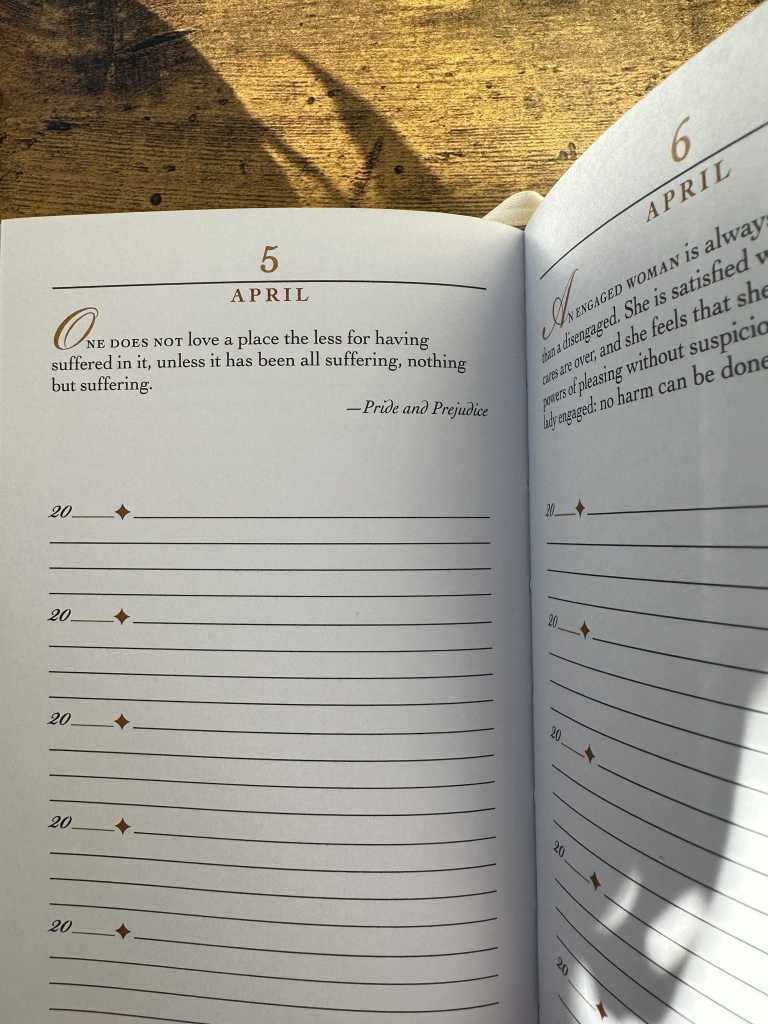 5
APRIL
ONE DOES NOT love a place the less for having
suffered in it, unless it has been all suffering, nothing
but suffering.
—Pride and Prejudice
20
20
20
20
20
6
APRIL
AN ENGAGED WOMAN is always
than a disengaged. She is satisfied
cares are over, and she feels that she
powers of pleasing without
lady engaged: no harm can be done
20
20
20
20
20